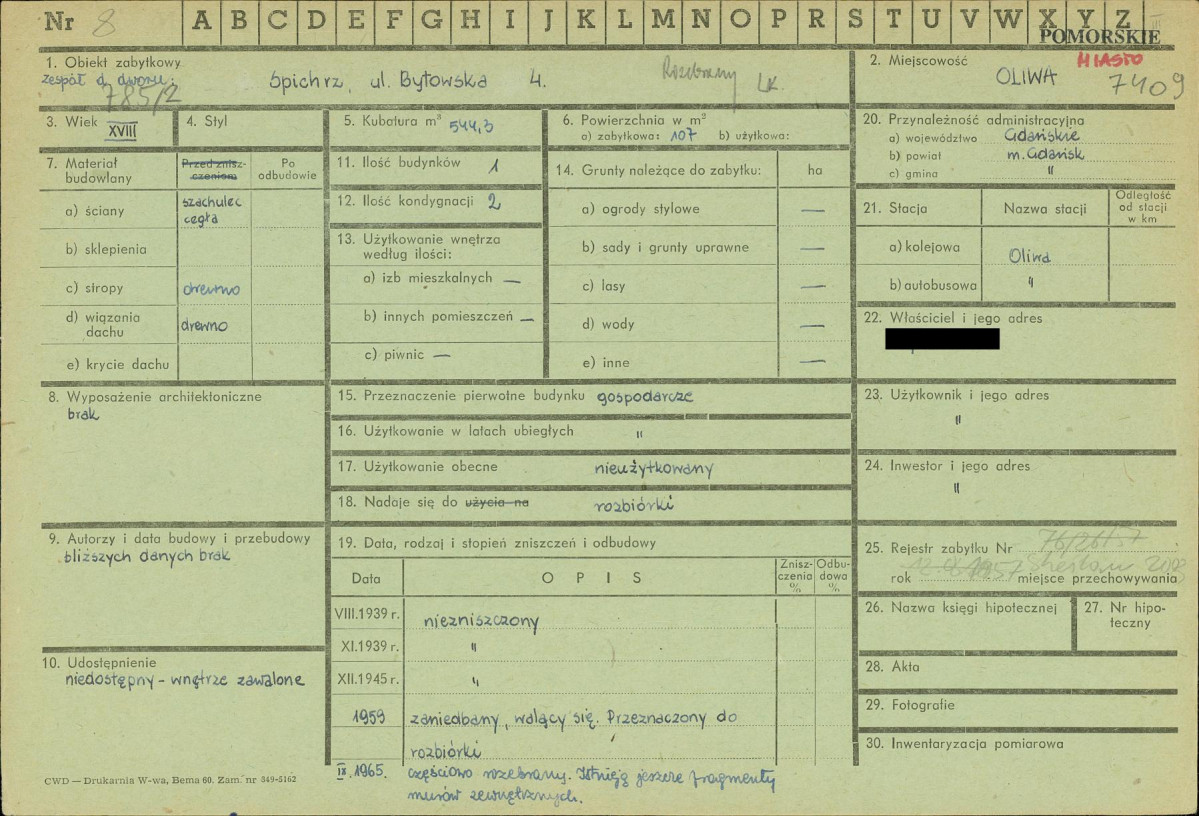 Nr 8 A B C D E F G H I J K L M N O P R S T U V W X Y Z
POMORSKIE
1. Obiekt zabytkowy
zespół d. dworu:
785/2
Spichrz, ul. Bytowska 4.
Rozebrany
2. Miejscowość
MIASTO
OLIWA
7409
3. Wiek XVIII
4. Styl
5. Kubatura m³ 544,3
6. Powierzchnia w m²
a) zabytkowa: 107 b) użytkowa:
7. Materiał budowlany
Przed znisz-
czeniem
Po
odbudowie
a) ściany szachulec
cegła
b) sklepienia
c) stropy drewno
d) wiązania
dachu drewno
e) krycie dachu
8. Wyposażenie architektoniczne
brak
9. Autorzy i data budowy i przebudowy
bliższych danych brak
10. Udostępnienie
niedostępny - wnętrze zawalone
11. Ilość budynków 1
12. Ilość kondygnacji 2
13. Użytkowanie wnętrza
według ilości:
a) izb mieszkalnych —
b) innych pomieszczeń —
c) piwnic —
14. Grunty należące do zabytku: ha
a) ogrody stylowe —
b) sady i grunty uprawne —
c) lasy —
d) wody —
e) inne —
15. Przeznaczenie pierwotne budynku gospodarcze
16. Użytkowanie w latach ubiegłych "
17. Użytkowanie obecne nieużytkowany
18. Nadaje się do użycia na rozbiórki
19. Data, rodzaj i stopień zniszczeń i odbudowy
Data OPIS Znisz-
czenia
% Odbu-
dowa
%
VIII.1939 r. niezniszczony
XI.1939 r. "
XII.1945 r. "
1959 zaniedbany, walący się. Przeznaczony do
rozbiórki
IX.1965. częściowo rozebrany. Istnieją jeszcze fragmenty
murów zewnętrznych.
20. Przynależność administracyjna
a) województwo Gdańskie
b) powiat m. Gdańsk
c) gmina "
21. Stacja Nazwa stacji Odległość
od stacji
w km
a) kolejowa Oliwa
b) autobusowa "
22. Właściciel i jego adres
23. Użytkownik i jego adres
"
24. Inwestor i jego adres
"
25. Rejestr zabytku Nr
rok 1957 miejsce przechowywania
26. Nazwa księgi hipotecznej
27. Nr hipo-
teczny
28. Akta
29. Fotografie
30. Inwentaryzacja pomiarowa
CWD — Drukarnia W-wa, Bema 60. Zam. nr 349-5162